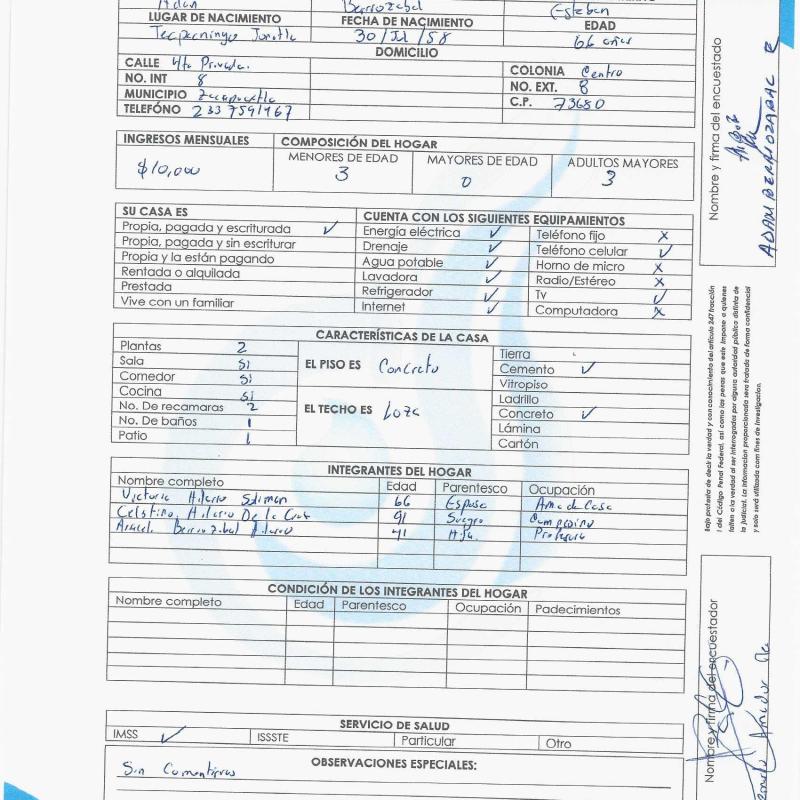 Adan Berrozabal Esteban
LUGAR DE NACIMIENTO FECHA DE NACIMIENTO EDAD
30/Jul/58 66 años
DOMICILIO
CALLE 4ta Privada. COLONIA Centro
NO. INT 8 NO. EXT. 8
MUNICIPIO Zacapoaxtla C.P. 73680
TELEFÓNO 233 7591467
INGRESOS MENSUALES COMPOSICIÓN DEL HOGAR
$10,000 MENORES DE EDAD MAYORES DE EDAD ADULTOS MAYORES
3 0 3
SU CASA ES CUENTA CON LOS SIGUIENTES EQUIPAMIENTOS
Propia, pagada y escriturada ✓ Energía eléctrica ✓ Teléfono fijo x
Propia, pagada y sin escriturar Drenaje ✓ Teléfono celular ✓
Propia y la están pagando Agua potable ✓ Horno de micro x
Rentada o alquilada Lavadora ✓ Radio/Estéreo x
Prestada Refrigerador ✓ Tv ✓
Vive con un familiar Internet ✓ Computadora x
CARACTERÍSTICAS DE LA CASA
Plantas 2 Tierra
Sala Si EL PISO ES Concreto Cemento ✓
Comedor Si Vitropiso
Cocina Si Ladrillo
No. De recamaras 2 EL TECHO ES Loza Concreto ✓
No. De baños 1 Lámina
Patio 1 Cartón
INTEGRANTES DEL HOGAR
Nombre completo Edad Parentesco Ocupación
Victoria Hilario Soliman 66 Esposa Ama de Casa
Celstino Hilario De la Cruz 91 Suegro Campesino
Araceli Berrozabal Hilario 41 Hija Profesora
CONDICIÓN DE LOS INTEGRANTES DEL HOGAR
Nombre completo Edad Parentesco Ocupación Padecimientos
SERVICIO DE SALUD
IMSS ✓ ISSSTE Particular Otro
OBSERVACIONES ESPECIALES:
Sin Comentarios
Nombre y firma del encuestado
ADAN BERROZABAL E
Bajo protesta de decir la verdad y con conocimiento del artículo 247 fracción
I del Código Penal Federal, así como las penas que este impone a quienes
falten a la verdad al ser interrogados por alguna autoridad pública distinta de
la judicial. La información proporcionada será tratada de forma confidencial
y solo será utilizada con fines de investigación.
Nombre y firma del encuestador